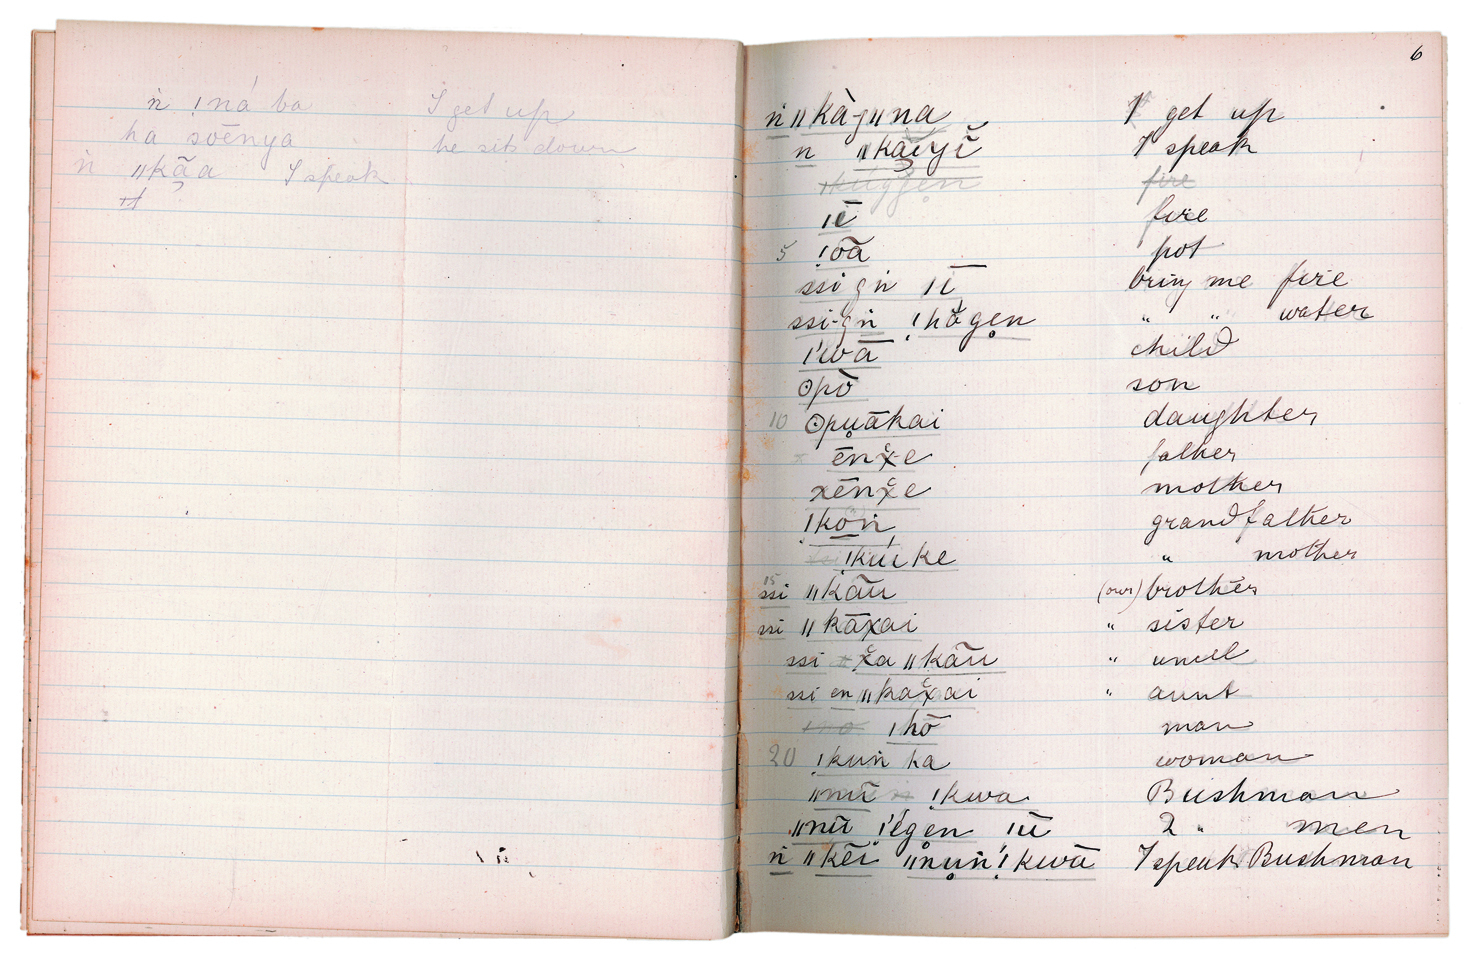 ṅ ǃná ba I get up
ha soēnya he sits down
ṅ ǁkã̄a I speak
6
ṅ ǁkà-ǥǁna I get up
n ǁkāĭyĭ̄ I speak
fire
ǀē fire
5 ǃōā pot
ssi g ṅ ǀī bring me fire
ssi-g ṅ ǃhăgen " " water
ǀ'wā child
ʘpò son
10 ʘpuākai daughter
ēnx̆e father
xēnx̆e mother
ǃkoṅ grandfather
ǃkúīke " mother
15 ssi ǁkāū (our) brother
ssi ǁkāxai " sister
ssi x̆a ǁkāū " uncle
ssi en ǁkax̆ai " aunt
ǀhō man
20 ǃkuṅ ha woman
ǁnū ǃkwa Bushman
ǁnū ǃ'égen ǀū 2 " men
ṅ ǁkēi ǁnuṅ ǃkwā I speak Bushman